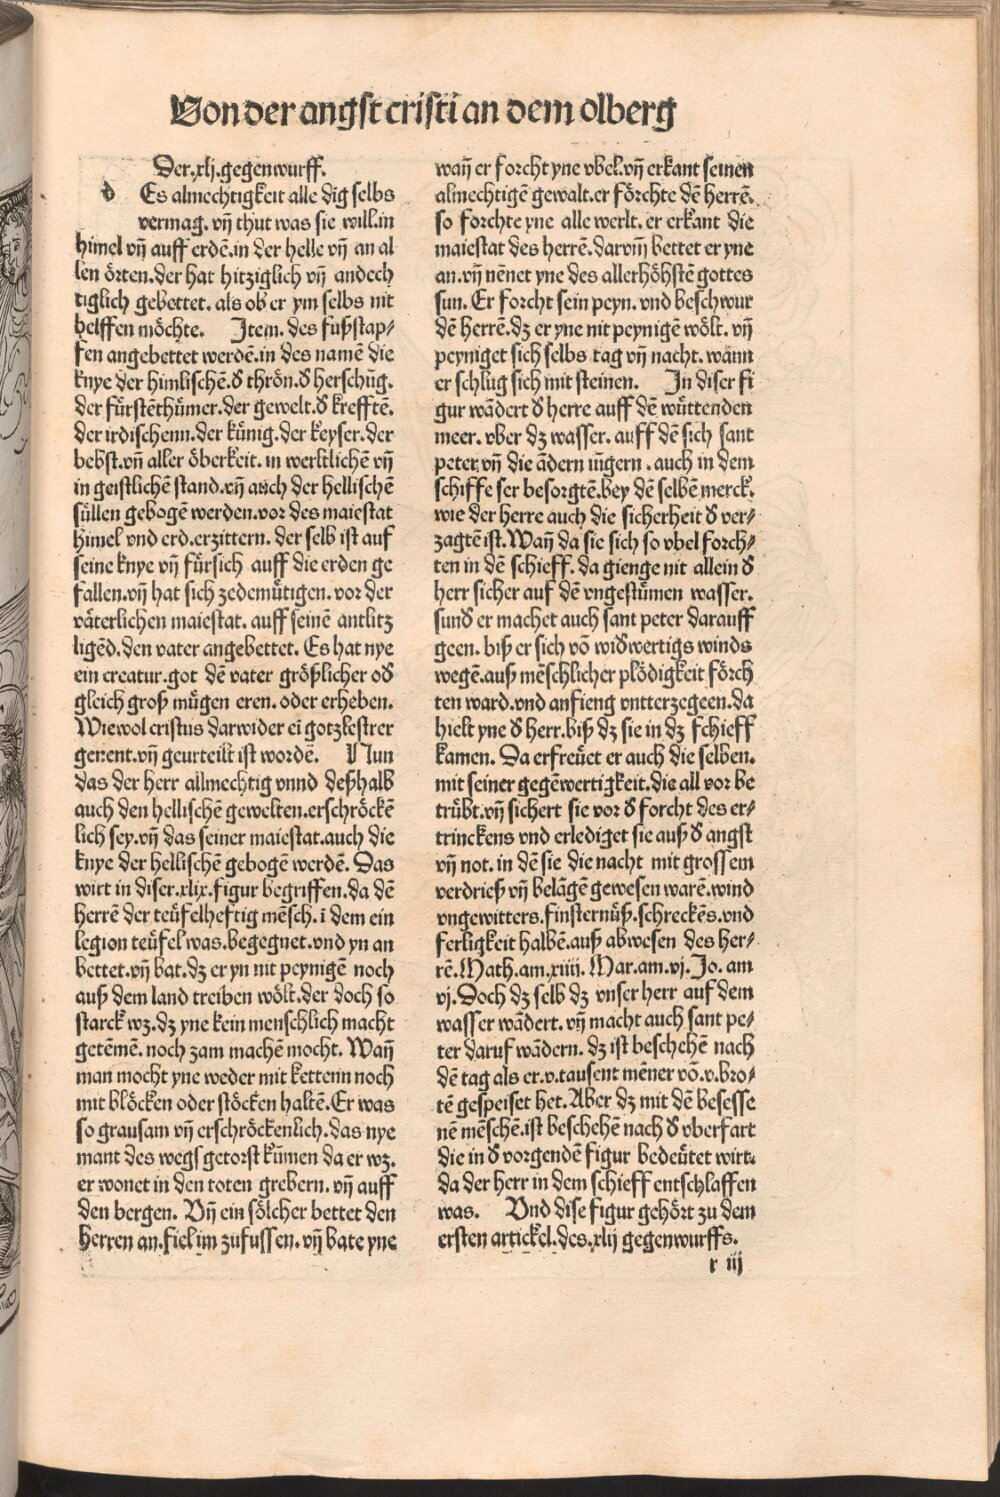 Von der angst cristi an dem olberg
Der .xlj. gegenwurff.
d Es almechtigkeit alle dig selbs
vermag. vñ thut was sie will. in
himel vñ auff erdẽ. in der helle vñ an al
len örten. der hat hitziglich vñ andech
tiglich gebettet. als ob er ym selbs nit
helffen möchte. Item. des fußstap⸗
fen angebettet werdẽ. in des namẽ die
knye der himlischẽ. đ thrön. đ herschũg.
der fürstẽthümer. der gewelt. đ krefftẽ.
der irdischenn. der künig. der keyser. der
bebst. vñ aller öberkeit. in werltlichẽ vñ
in geistlichẽ stand. vñ auch der hellischẽ
süllen gebogẽ werden. vor des maiestat
himel vnd erd. erzittern. der selb ist auf
seine knye vñ fürsich auff die erden ge
fallen. vñ hat sich zedemütigen. vor der
väterlichen maiestat. auff seinẽ antlitz
ligẽd. den vater angebettet. Es hat nye
ein creatur. got dẽ vater größlicher ođ
gleich groß mügen eren. oder erheben.
Wiewol cristus darwider eĩ gotzlestrer
genent. vñ geurteilt ist wordẽ. Nun
das der herr allmechtig vnnd deßhalb
auch den hellischẽ gewelten. erschröckẽ
lich sey. vñ das seiner maiestat. auch die
knye der hellischẽ gebogẽ werdẽ. Das
wirt in diser .xlix. figur begriffen. da dẽ
herrẽ der teüfelheftig mẽsch. ĩ dem ein
legion teüfel was. begegnet. vnd yn an
bettet. vñ bat. dz er yn nit peynigẽ noch
auß dem land treiben wölt. der doch so
starck wz. dz yne kein menschlich macht
getẽmẽ. noch zam machẽ mocht. Wañ
man mocht yne weder mit kettenn noch
mit blöcken oder stöcken haltẽ. Er was
so grausam vñ erschröckenlich. das nye
mant des wegs getorst kũmen da er wz.
er wonet in den toten grebern. vñ auff
den bergen. Vñ ein sölcher bettet den
herren an. fiel im zufussen. vñ bate yne
wañ er forcht yne vbel. vñ erkant seinen
almechtigẽ gewalt. er förchte dẽ herrẽ.
so forchte yne alle werlt. er erkant die
maiestat des herrẽ. darvm̃ bettet er yne
an. vñ nẽnet yne des allerhöhstẽ gottes
sun. Er forcht sein peyn. vnd beschwur
dẽ herrẽ. dz er yne nit peynigẽ wölt. vñ
peyniget sich selbs tag vñ nacht. wãnn
er schlug sich mit steinen. In diser fi
gur wãdert đ herre auff dẽ wüttenden
meer. vber dz wasser. auff dẽ sich sant
peter vñ die ãdern iũgern. auch in dem
schiffe ser besorgtẽ. bey dẽ selbẽ merck.
wie der herre auch die sicherheit đ ver⸗
zagtẽ ist. Wañ da sie sich so vbel forch⸗
ten in dẽ schieff. da gienge nit allein đ
herr sicher auf dẽ vngestümen wasser.
sunđ er machet auch sant peter darauff
geen. biß er sich võ wiđwertigs winds
wegẽ. auß mẽschlicher plödigkeit förch
ten ward. vnd anfieng vntterzegeen. da
hielt yne đ herr. biß dz sie in dz schieff
kamen. Da erfreüet er auch die selben.
mit seiner gegẽwertigkeit. die all vor be
trübt. vñ sichert sie vor đ forcht des er⸗
trinckens vnd erlediget sie auß đ angst
vñ not. in dẽ sie die nacht mit grossem
verdrieß vñ belãgẽ gewesen warẽ. wind
vngewitters. finsternüß. schreckẽs. vnd
ferligkeit halbẽ. auß abwesen des her⸗
rẽ. Math. am. xiiii. Mar. am. vj. Jo. am
vj. Doch dz selb dz vnser herr auf dem
wasser wãdert. vñ macht auch sant pe⸗
ter daruf wãdern. dz ist beschehẽ nach
dẽ tag als er. v. tausent mẽner võ. v. bro⸗
tẽ gespeiset het. Aber dz mit dẽ besesse
nẽ mẽschẽ. ist beschehẽ nach đ vberfart
die in đ vorgendẽ figur bedeütet wirt.
da der herr in dem schieff entschlaffen
was. Vnd dise figur gehört zu dem
ersten artickel. des .xlij gegenwurffs.
r iij